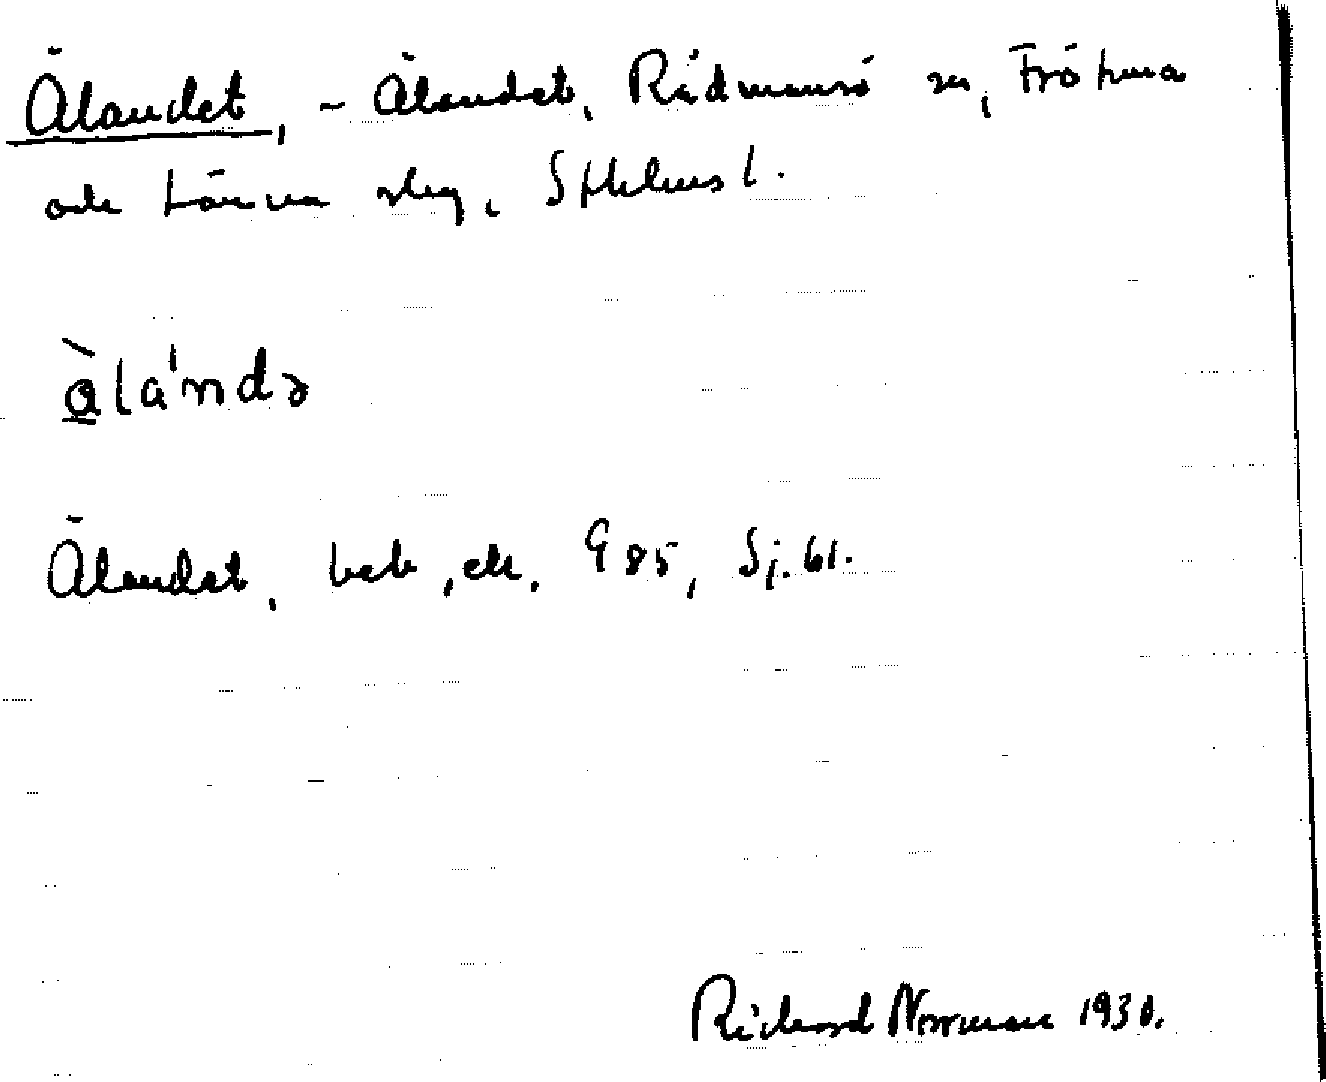 Älandet, - Älandet, Rådmansö sn, Frötuna
och Länna skg, Sthlms l.
à̱la'ndə
Älandet, beb, ek. G 85, Sj. 61.
Rickard Norrman 1930.